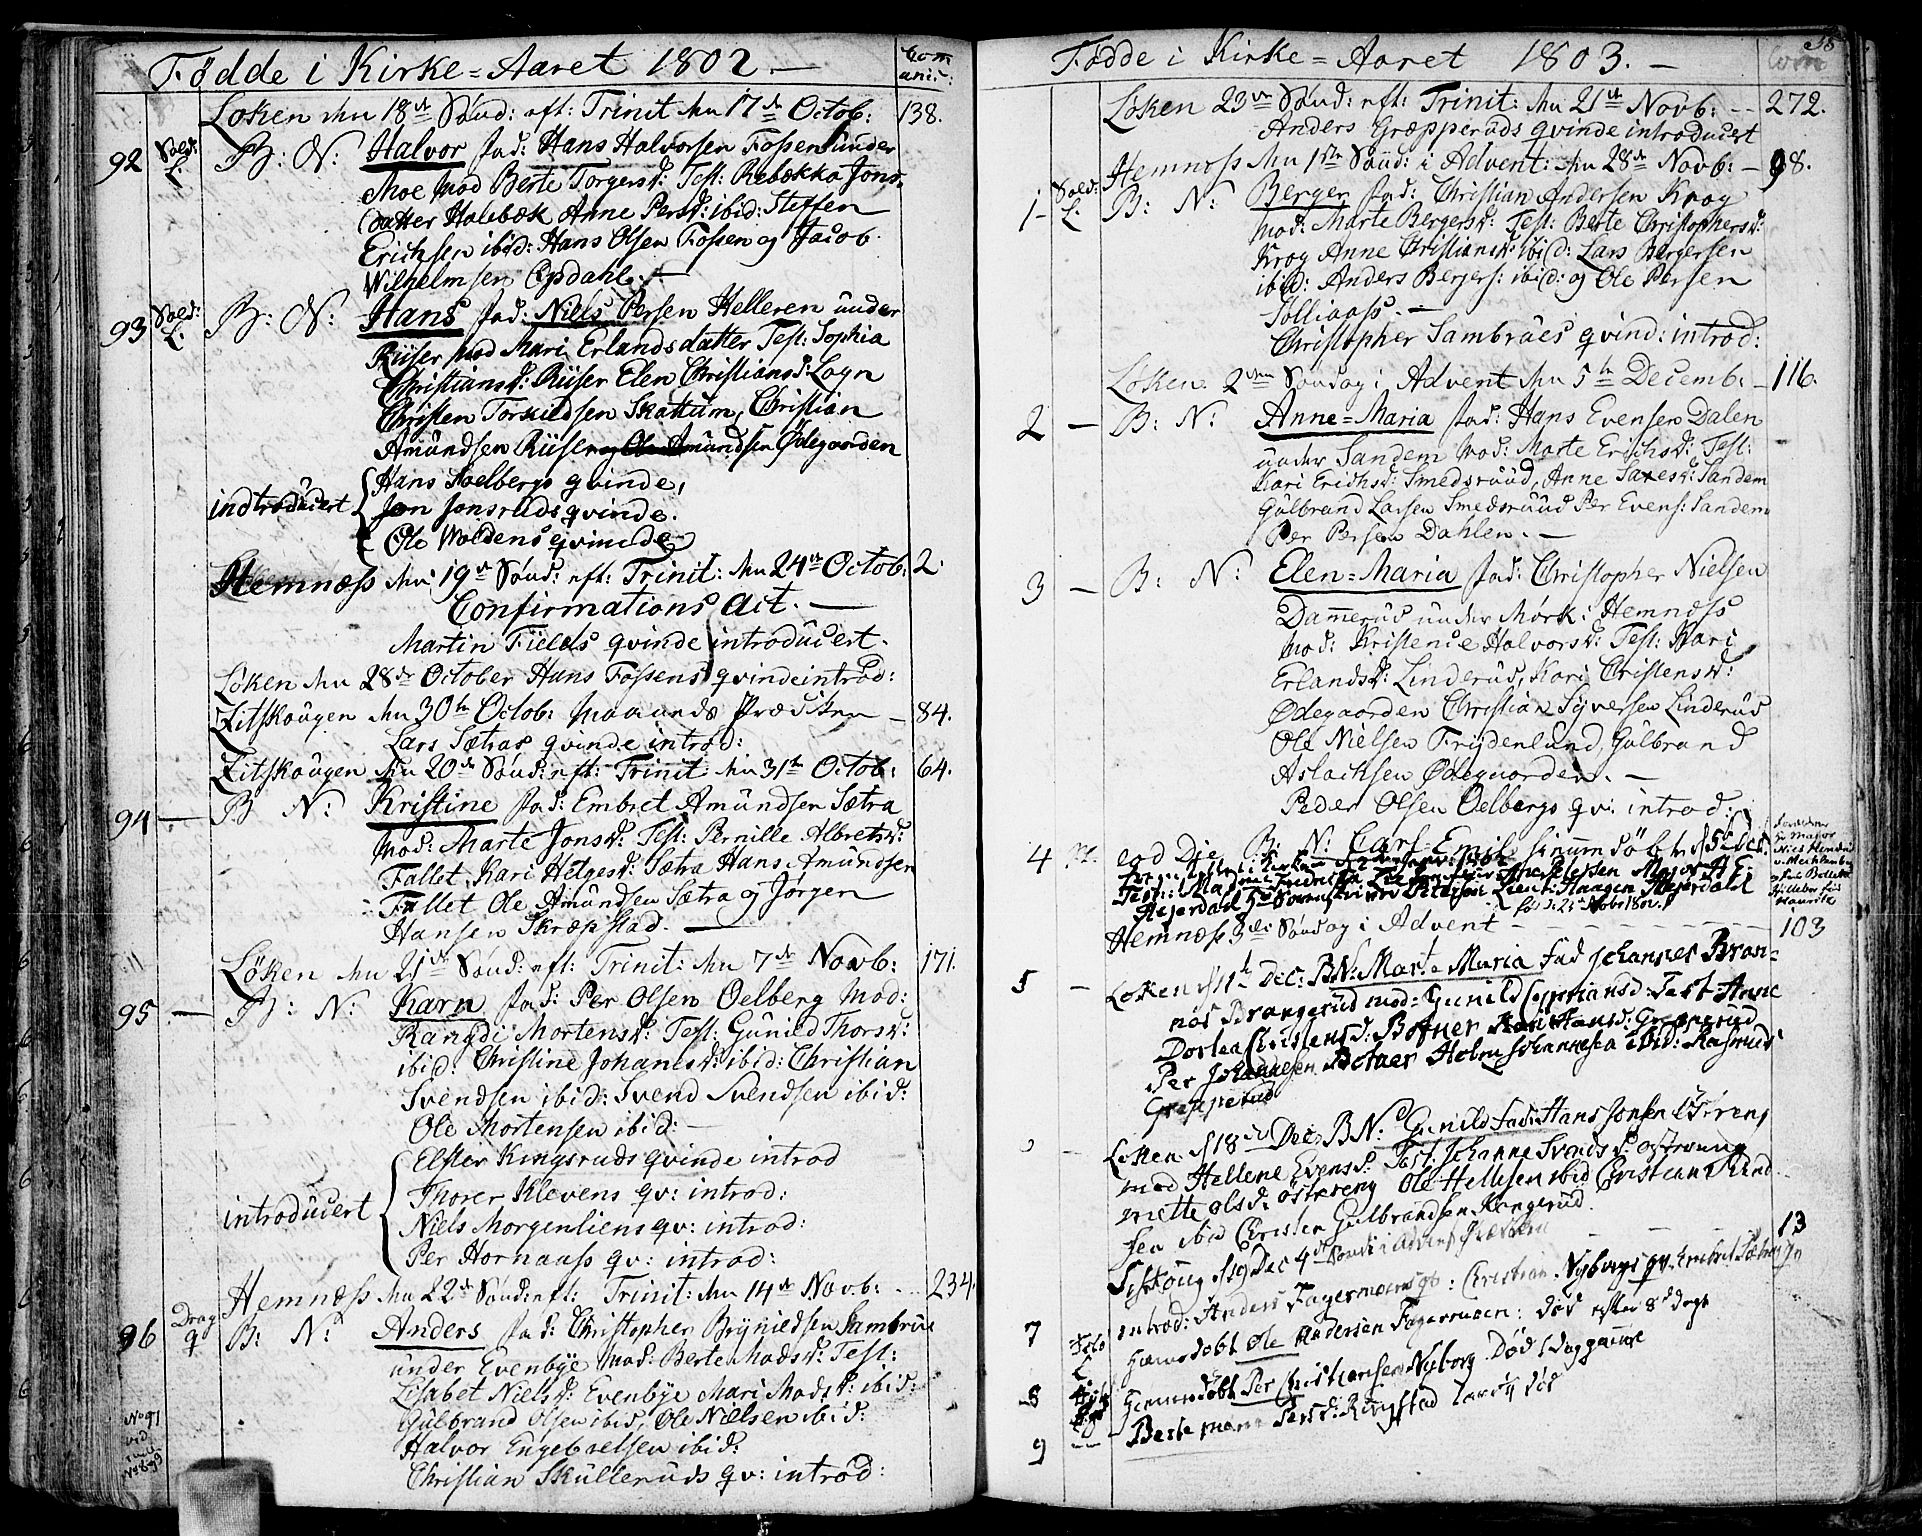 Fødde i Kirke=Aaret 1802.—
Com
unic:
Løken den 18de Sönd: eft: Trinit den 17de Octob: 138.
92 Sold: L. B: N: Halvor fad: Hans Halvorsen Fossen under
Moe mod Berte Torgersd: Test: Rebekka Jons-
datter Holebæk Anne Persd: ibid: Steffen
Erichsen ibid: Hans Olsen Fossen og Jacob
Wilhelmsen Opdahl.—
93 Sold: L. B: N: Hans fad: Niels Persen Helleren under
Riiser mod Mari Erlandsdatter Test: Sophia
Christiansd: Riiser Elen Christiansd: Logn
Christen Torkildsen Skattum, Christian
Amundsen Riiser og Ole Amundsen Ødegaarden
Hans Soelbergs qvinde,
indtroducert Jon Jonsruds qvinde.
Ole Woldens qvinde
Hemness den 19de Sönd: eft: Trinit: den 24de Octob: 2.
Confirmations Act.—
Martin Fields qvinde introducert.
Løken den 28de October Hans Fossens qvinde introd:
Zitskougen den 30te Octob: Maaneds Prædiken — 84.
Lars Sætras qvinde introd:
Zitskougen den 20de Sönd: eft: Trinit den 31te Octob: 64.
94 — B N: Kristine fad: Embret Amundsen Sætra
Mod: Marte Jonsd: Test: Pernille Albretsd:
Fallet Kari Helgesd: Sætra Hans Amundsen
Fallet Ole Amundsen Sætra og Jörgen
Hansen Skræpstad.—
Løken den 21de Sönd: eft: Trinit: den 7de Novb: 171.
95 — B: N: Karn fad: Per Olsen Oelberg Mod:
Rangdi Mortensd: Test: Gunild Thorsd:
ibid: Christine Johansd: ibid: Christian
Svendsen ibid: Svend Svendsen ibid:
Ole Mortensen ibid:—
Elster Kingsruds qvinde introd
Thorer Klevens qv: introd:
introducert Niels Morgenliens qv: introd:
Per Hornaass qv: introd:
Hemness den 22de Sönd: eft: Trinit: den 14de Novb: 234.
96 Drag 9 B: N: Anders fad: Christopher Brynildsen Sambrue
under Evenbye Mod: Berte Madsd: Test:
Lisabet Nielsd: Evenbye Mari Madsd: ibid:
Gulbrand Olsen ibid. Ole Nielsen ibid:
Halvor Engebretsen ibid:
Christian Skulleruds qv: introd:
No 91
vid
No 899
Fødde i Kirke=Aaret 1803.—
Com
38
Løken 23de Sönd: eft: Trinit: den 21de Novb: -- 272.
Anders Græpperuds qvinde introducert
Hemness den 1ste Sönd: i Advent: den 28de Novb: — 98.
1- Sold: L. B: N: Berger fad: Christian Andersen Krog
Mod: Marte Bergersd: Test: Berte Christophersd:
Krog Anne Christiansd: ibid: Lars Bergersen
ibid: Anders Bergers: ibid: og Ole Persen
Solliaass.—
Christopher Sambrues qvind: introd:
Løken. 2den Söndag i Advent den 5te Decemb: — 116.
2 — B: N: Anne=Maria fad: Hans Evensen Dalen
under Sandem Mod: Marte Erichsd: Test:
Kari Erichsd: Smedsruud, Anne Saxesd: Sandem
Gulbrand Larsen Smedsruud Per Evens: Sandem
Per Persen Dahlen.—
3 — B: N: Elen=Maria fad: Christopher Nielsen
Dammerud under Mork: Hemness
Mod: Kristence Halvorsd: Test: Kari
Erlandsd: Linderud, Kari Christensd:
Ødegaarden Christian Syversen Linderud
Ole Nielsen Frydenlund, Gulbrand
Aslachsen Ødegaarden.—
Peder Olsen Oelbergs qv: introd:
4 eod Die B: N: Carl Emil hiemmedöbt d 5 Dec
Major
Test: Petersen Major H E:
Hejerdal Petersen Lieut: Stangen Hejerdahl
föd d 25 Novbr 1802.
Hemness 3die Söndag i Advent — — — — 103
5 — Løken d 11te Dec: BN: Marte Maria fad Johannes Bran-
nes Brangerud mod: Gunild Cyprians d: Test: Anne
Dortea Christens d: Botner Kari Hans d: Græperud
Per Johannesen Botner Holm Johannesen ibid: Rasmus
Græpperud
Løken d 18de Dec BN: Gunild fad: Hans Jonsen Østreng
mod Hellene Evens d: Test: Johanne Svends d: østreng
mette ols d: östereng Ole Hellesen ibid Christian Svend
sen ibid Christen Gulbrandsen Kongerud
13
Sitskoug d 19 Dec 4de Sönd: i Advent Prædiken
introd: Anders Fagermoens qv: Christian Nyborgs qv. Embret Sætra
7 hiemedöbt Ole Andersen Fagermoen: död efter 8 dage
8 hiemmedöbt Per Christiansen Nyborg Död 1 dag gammel
9 — Berte Marie Pers d: Ringstad